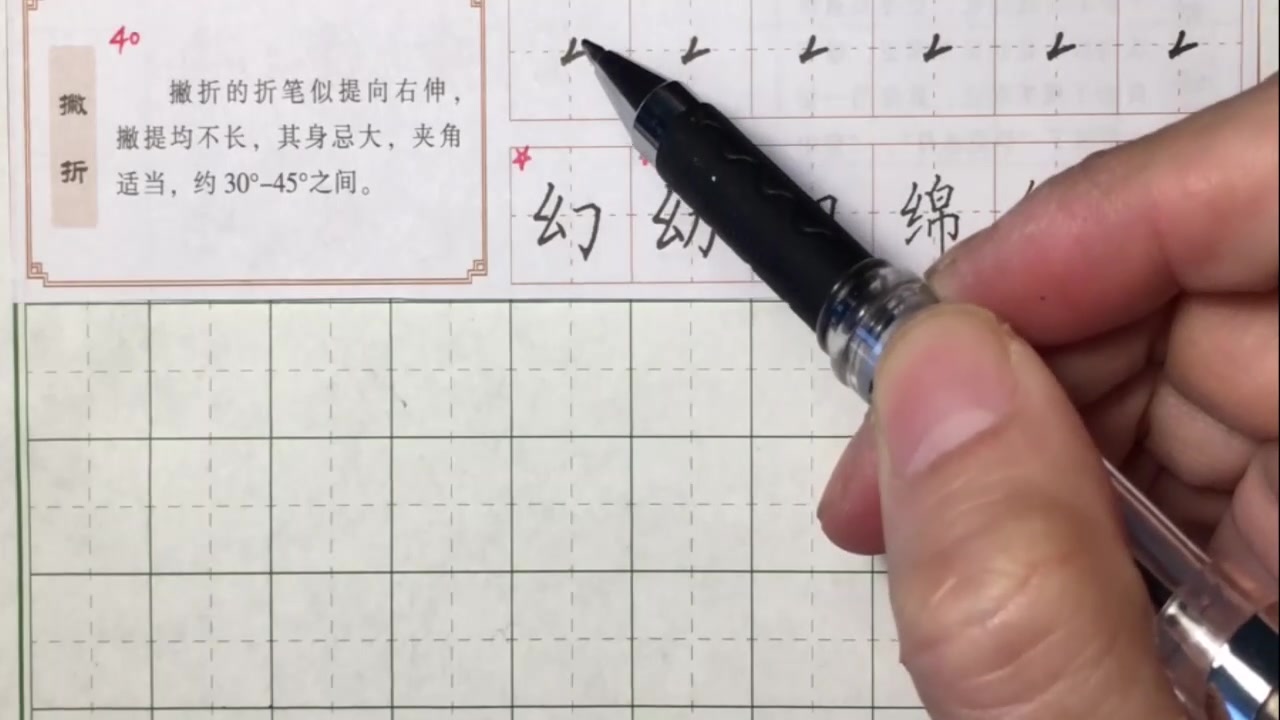 40
撇折
撇折的折笔似提向右伸，
撇提均不长，其身忌大，夹角
适当，约 30°–45°之间。
幻 幼 绵